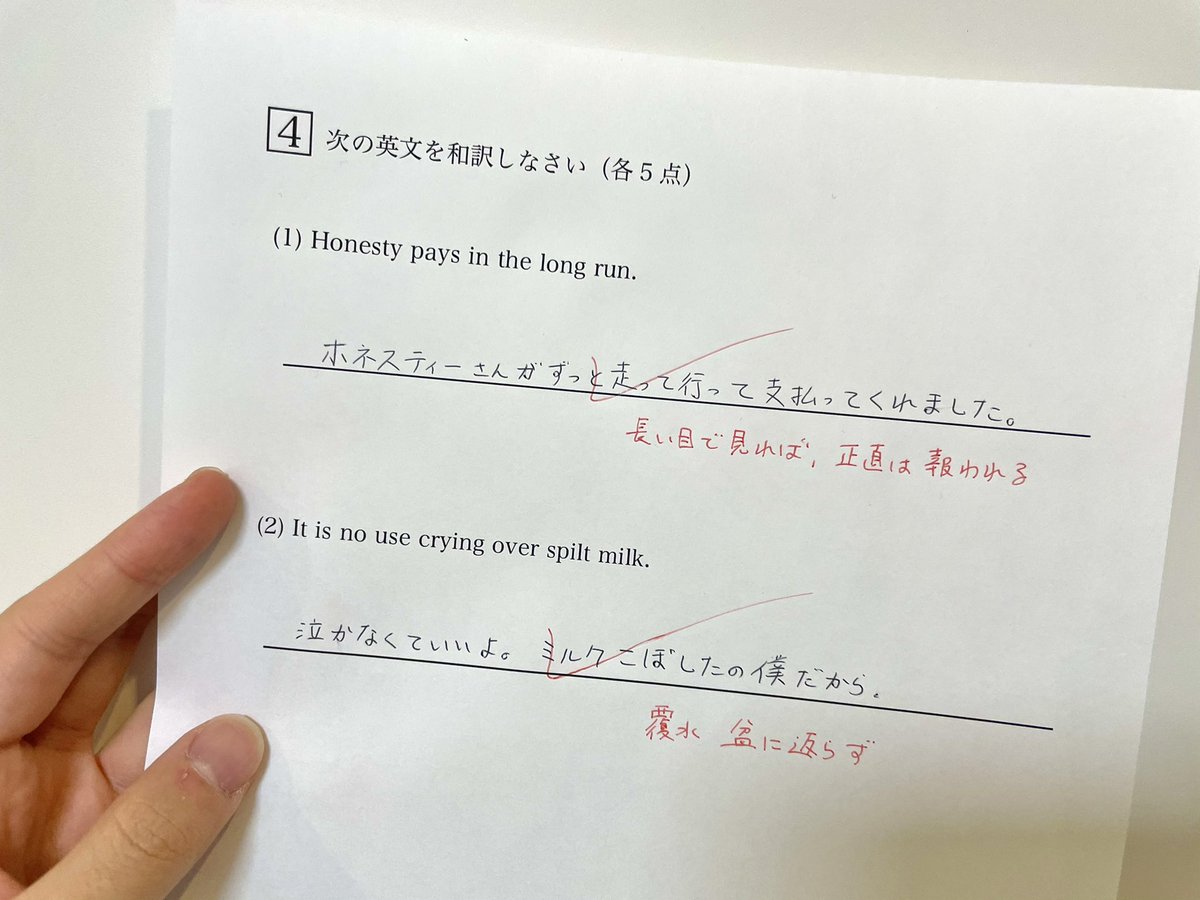 4 次の英文を和訳しなさい(各5点)
(1) Honesty pays in the long run.
ホネスティーさんがずっと走って行って支払ってくれました。
長い目で見れば,正直は報われる
(2) It is no use crying over spilt milk.
泣かなくていいよ。ミルクこぼしたの僕だから.
覆水 盆に返らず